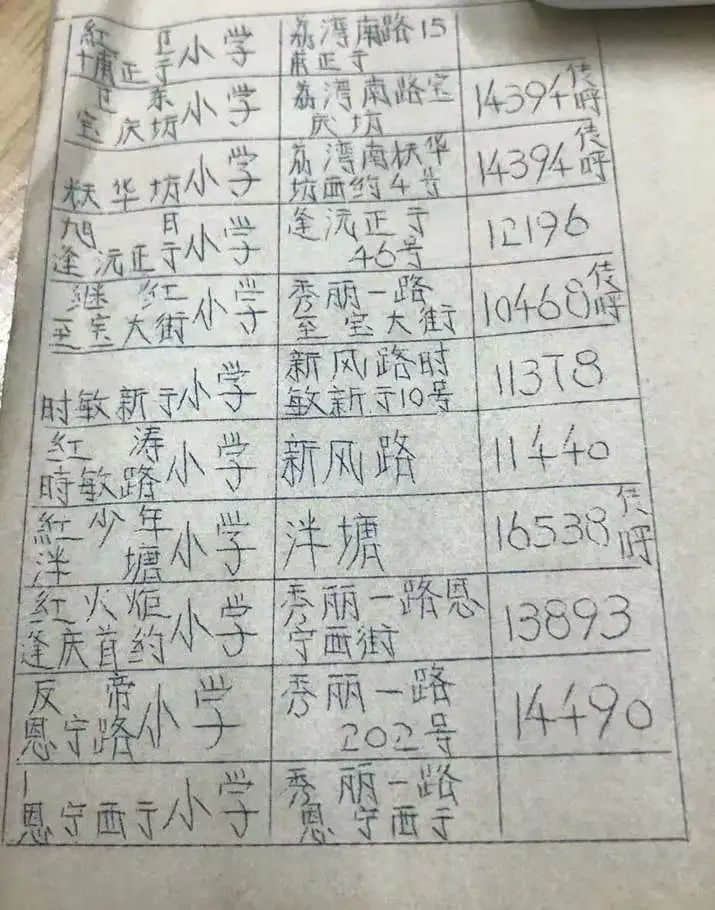 紅 卫 小学 荔湾南路15
十甫正于 甫正于
卫 东 小学 荔湾南路宝 14394 传呼
宝庆坊 庆坊
扶华坊小学 荔湾南扶华 14394 传呼
坊西约4号
旭 日 小学 逢沅正于 12196
逢沅正于 46号
继 红 小学 秀丽一路 10468 传呼
至宝大街 至宝大街
时敏新于小学 新风路时 11378
敏新于10号
紅 涛 小学 新风路 11440
時敏路
紅少年 小学 泮塘 16538 传呼
泮 塘
红火炬 小学 秀丽一路恩 13893
逢庆首约 宁西街
反 帝 小学 秀丽一路 14490
恩宁路 202号
恩宁西于小学 秀丽一路
恩宁西于